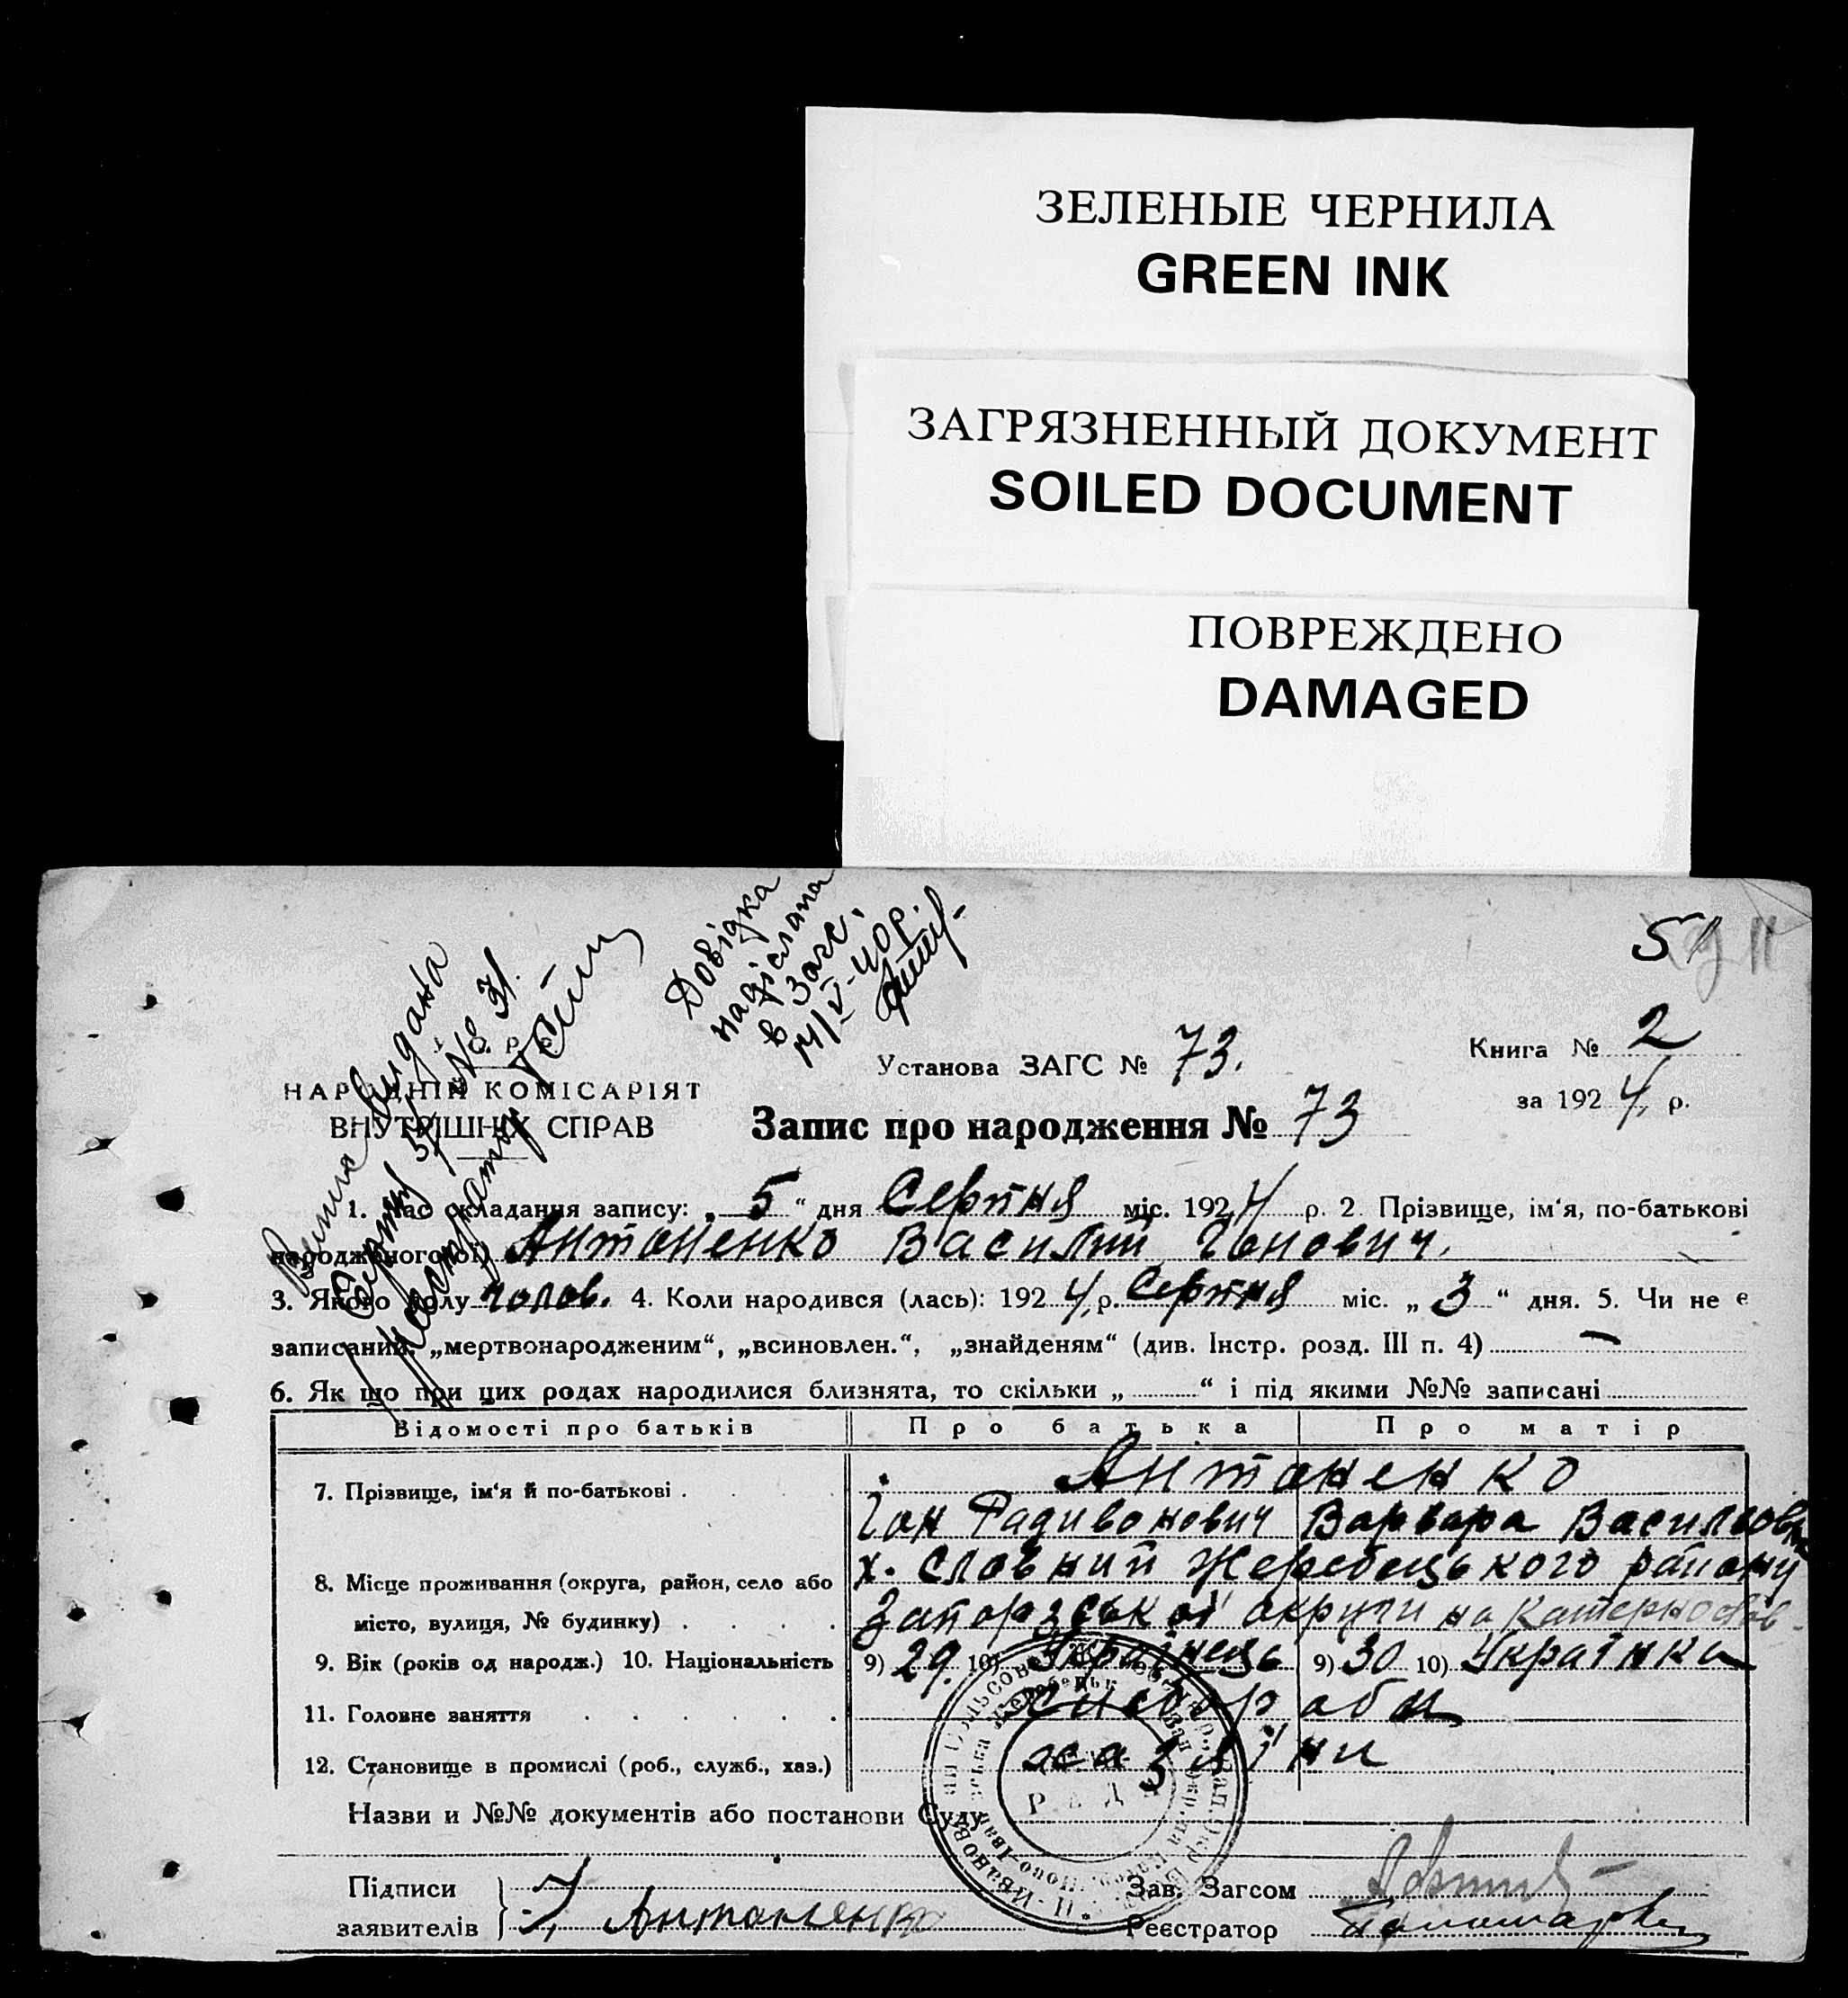 ЗЕЛЕНЫЕ ЧЕРНИЛА
GREEN INK
ЗАГРЯЗНЕННЫЙ ДОКУМЕНТ
SOILED DOCUMENT
ПОВРЕЖДЕНО
DAMAGED
Довідка
надіслана
в Загс.
14/V-40р.
видана
№ 31.
51
НАРОДНІЙ КОМІСАРІЯТ
ВНУТРІШНІХ СПРАВ
Установа ЗАГС № 73.
Книга № 2
за 1924 р.
Запис про народження № 73
1. Час складання запису: „5“ дня Серпня міс. 1924 р. 2. Прізвище, ім‘я, по-батькові
народженого(ої) Антоненко Василий Іонович.
3. Якого полу чолов. 4. Коли народився (лась): 1924 р. Серпня міс. „3“ дня. 5. Чи не є
записаний: „мертвонародженим“, „всиновлен.“, „знайденям“ (див. Інстр. розд. III п. 4) —
6. Як що при цих родах народилися близнята, то скільки „ “ і під якими №№ записані
Відомості про батьків Про батька Про матір
7. Прізвище, ім‘я й по-батькові . Антоненко
Іон Радивонович Варвара Васильовна
8. Місце проживання (округа, район, село або х. Славний Жеребецького району
місто, вулиця, № будинку) . Запорзської округи на Катернослав.
9. Вік (років од народж.) 10. Національність 9) 29. 10) Українець 9) 30 10) Українка
11. Головне заняття хлібороби
12. Становище в промислі (роб., служб., хаз.) хазяїни
Назви и №№ документів або постанови Суду
РАДА
Підписи
заявителів } Антоненко
Зав. Загсом
Реєстратор Паламарчук